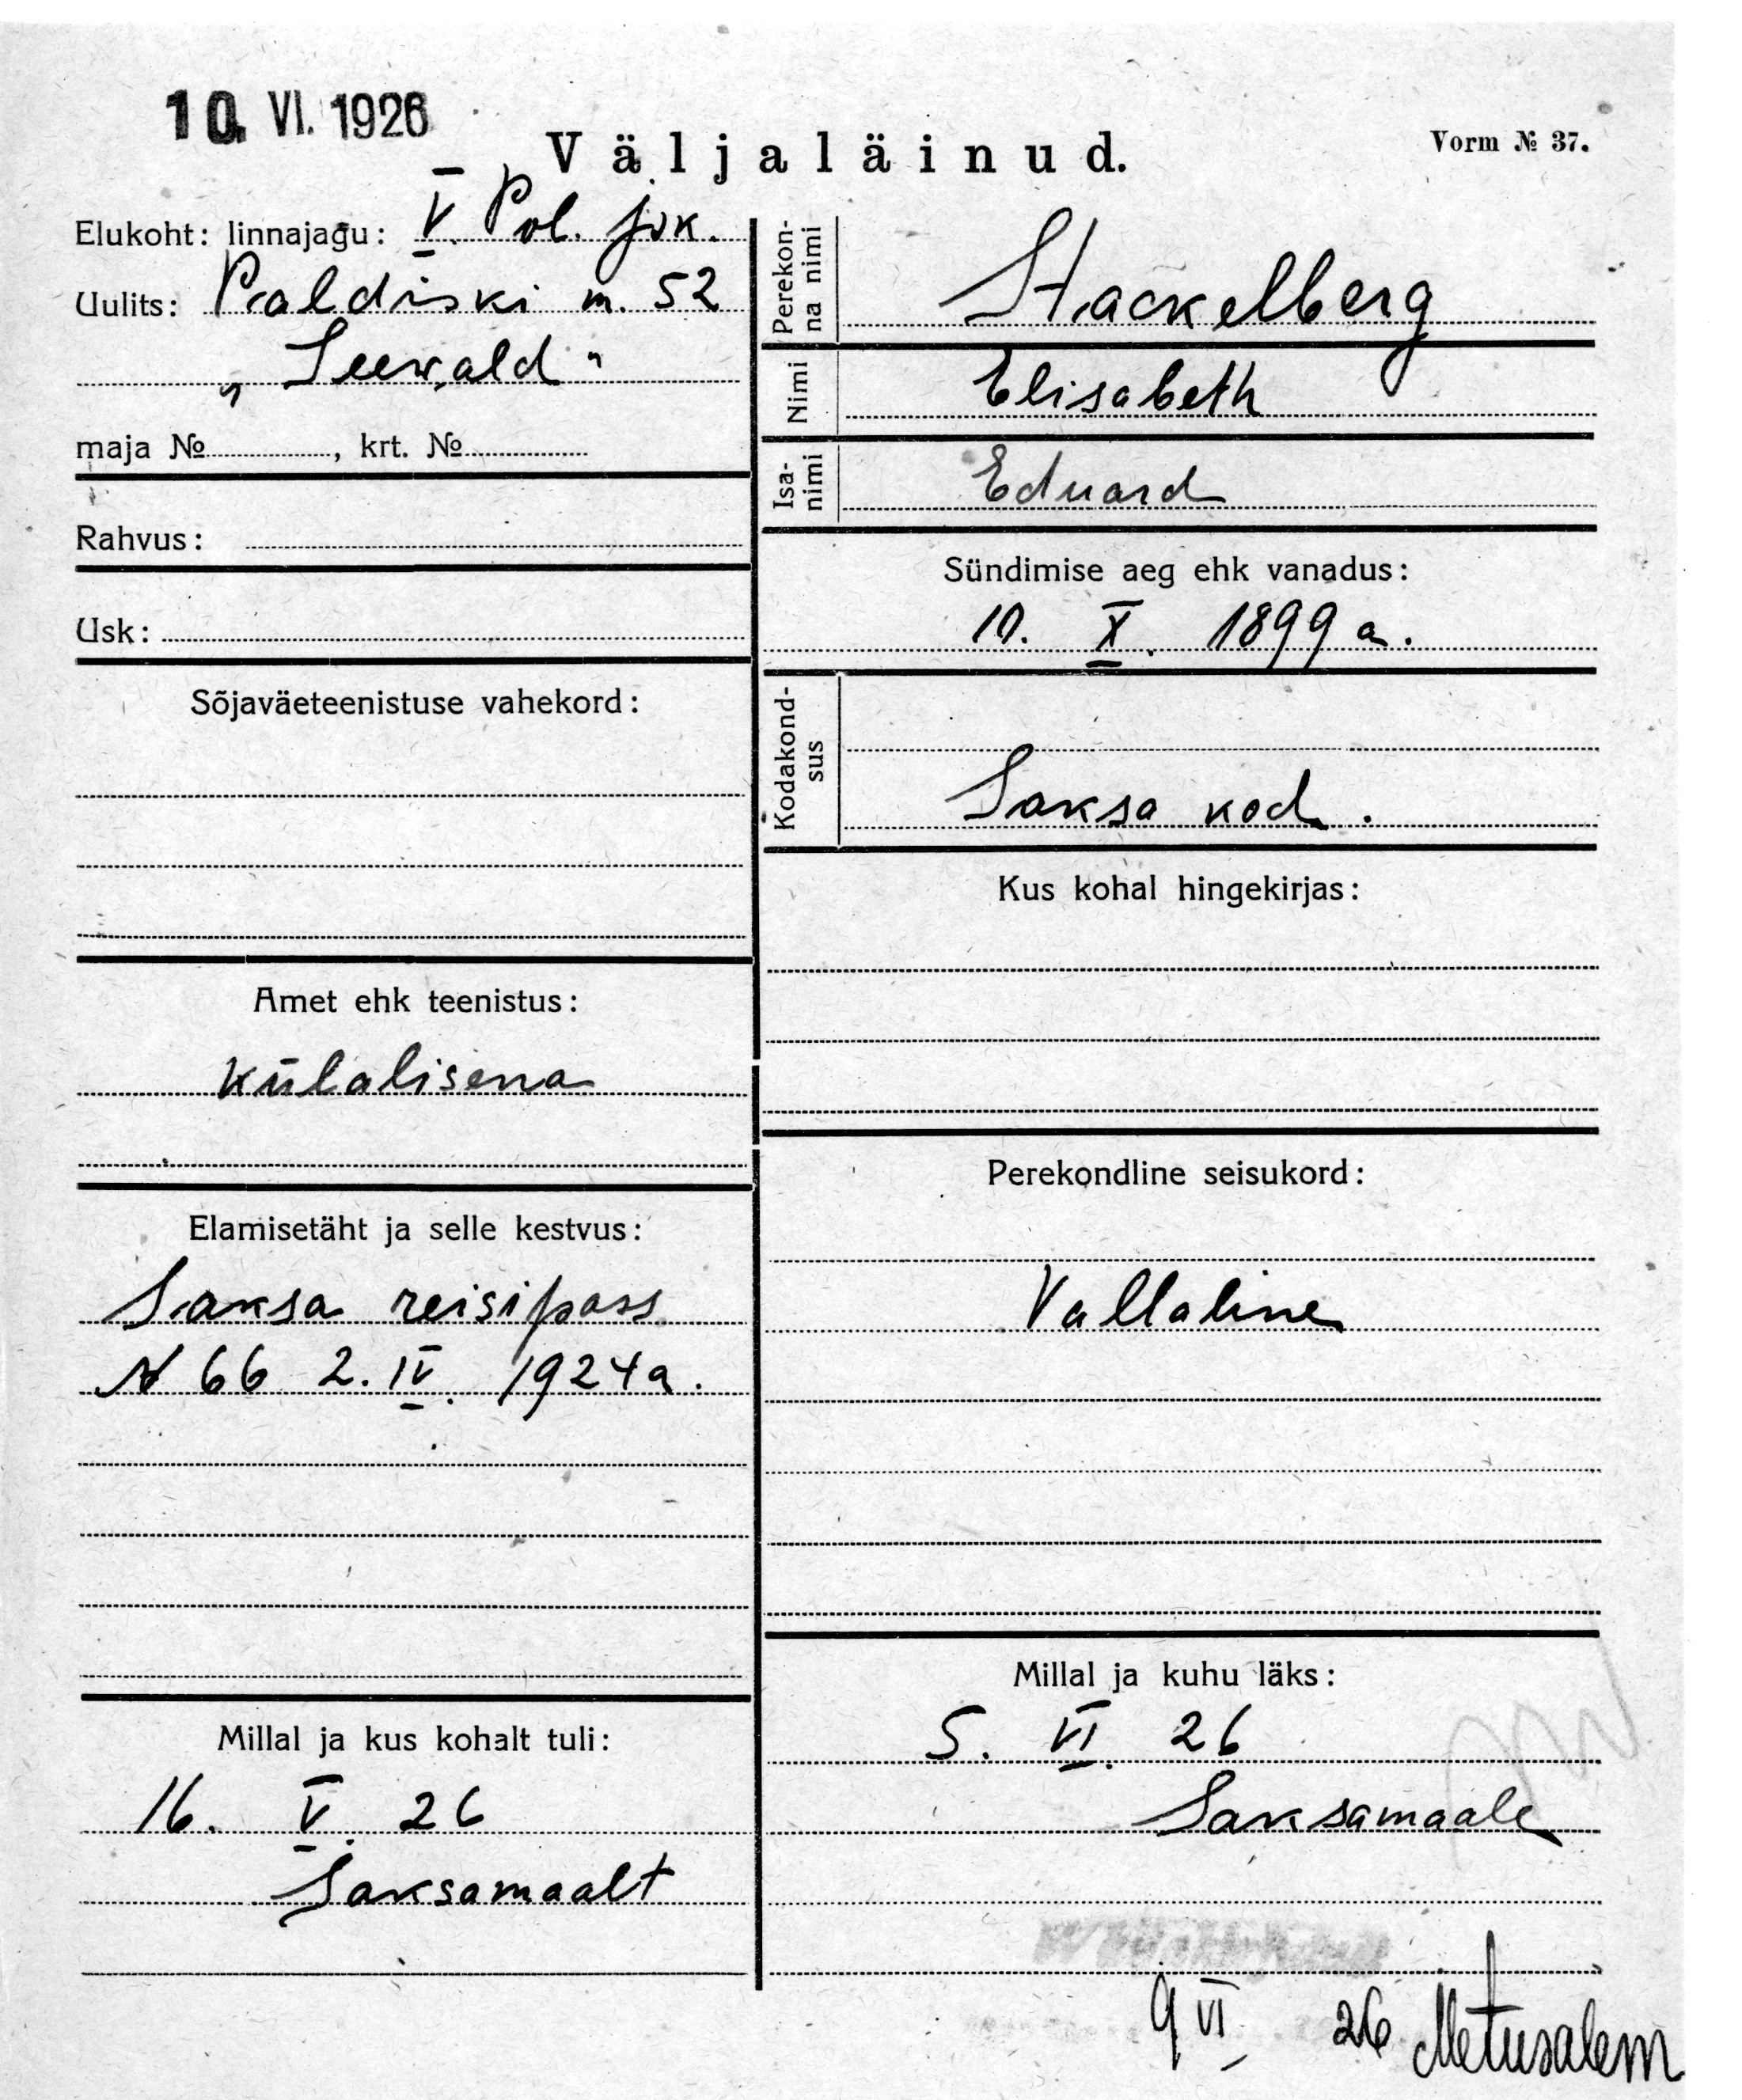 10. VI. 1926
Väljaläinud.
Vorm № 37.
Elukoht: linnajagu: V. Pol. jsk.
Uulits: Paldiski m. 52
„Seewald"
maja № , krt. №
Rahvus:
Usk:
Sõjaväeteenistuse vahekord:
Amet ehk teenistus:
Külalisena
Elamisetäht ja selle kestvus:
Saksa reisipass
N 66 2. IV. 1924 a.
Millal ja kus kohalt tuli:
16. V. 26
Saksamaalt
Perekonna nimi
Stackelberg
Nimi
Elisabeth
Isa-nimi
Eduard
Sündimise aeg ehk vanadus:
10. X. 1899 a.
Kodakond-sus
Saksa kod.
Kus kohal hingekirjas:
Perekondline seisukord:
Vallaline
Millal ja kuhu läks:
5. VI. 26
Saksamaale
9 VI 26 Metusalem